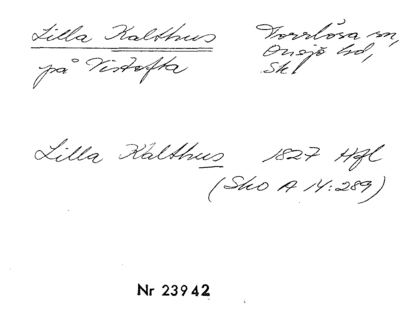 Lilla Kalthus Torrlösa sn,
på Vistofta Onsjö hd,
Sk
Lilla Kalthus 1827 Hfl
(Sko A 14:289)
Nr 23942